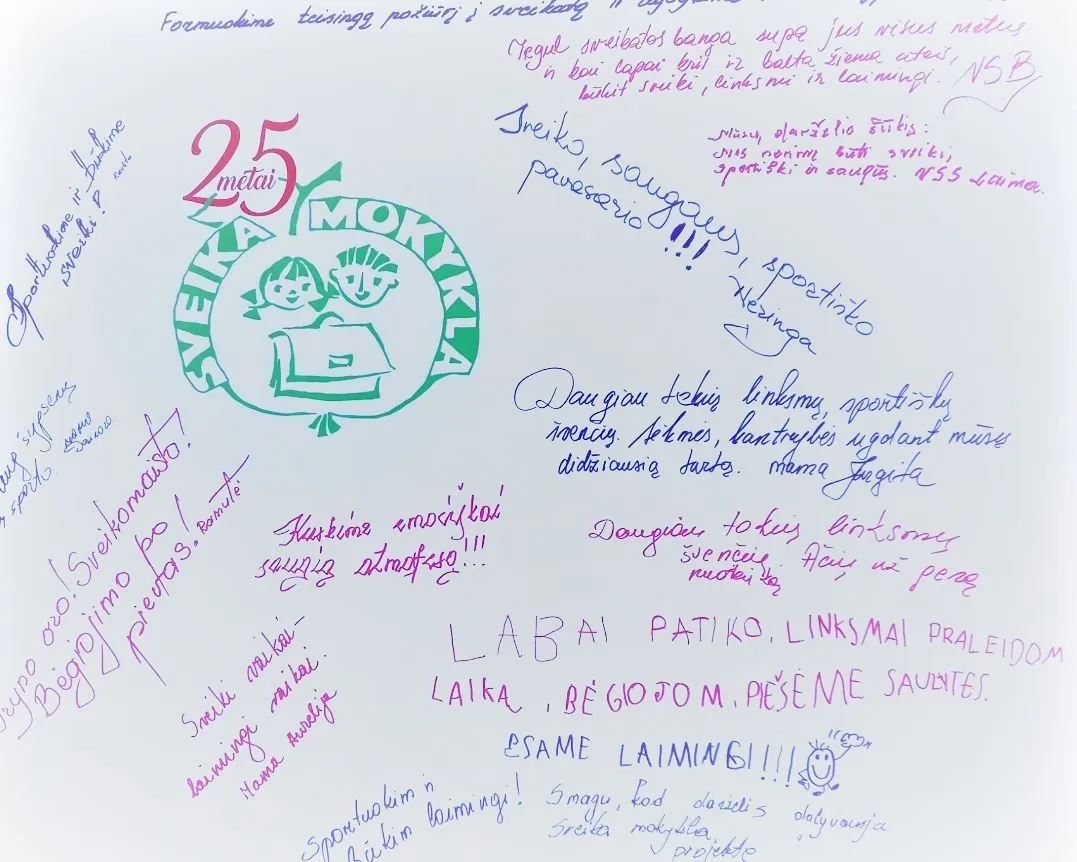 Formuokime teisingą požiūrį į sveikatą ir
Tegul sveikatos banga supa jus visus metus
ir kai lapai kris ir balta žiema ateis,
būkit sveiki, linksmi ir laimingi. NSB
25
metai
SVEIKA MOKYKLA
Sportuokime ir būkime
sveiki!
Sveiko, saugaus, sportiško
pavasario!!!
Neringa
Mūsų darželio šūkis:
mes norime būti sveiki,
sportiški ir saugūs. NSS Laima.
Daugiau tokių linksmų, sportiškų
švenčių. Sėkmės, kantrybės ugdant mūsų
didžiausią turtą. mama Jurgita
sporto.
oro! Sveiko maisto!
Bėgiojimo po
pievas. Ramutė
Kurkime emociškai
saugią atmosferą!!!
Daugiau tokių linksmų
švenčių. Ačiū už gerą
nuotaiką
LABAI PATIKO, LINKSMAI PRALEIDOM
LAIKĄ, BĖGIOJOM, PIEŠĖME SAULYTES.
ESAME LAIMINGI!!!!
Sveiki vaikai-
laimingi vaikai.
Mama Aurelija
Sportuokim ir
būkim laimingi!
Smagu, kad darželis dalyvauja
Sveika mokykla
projekte